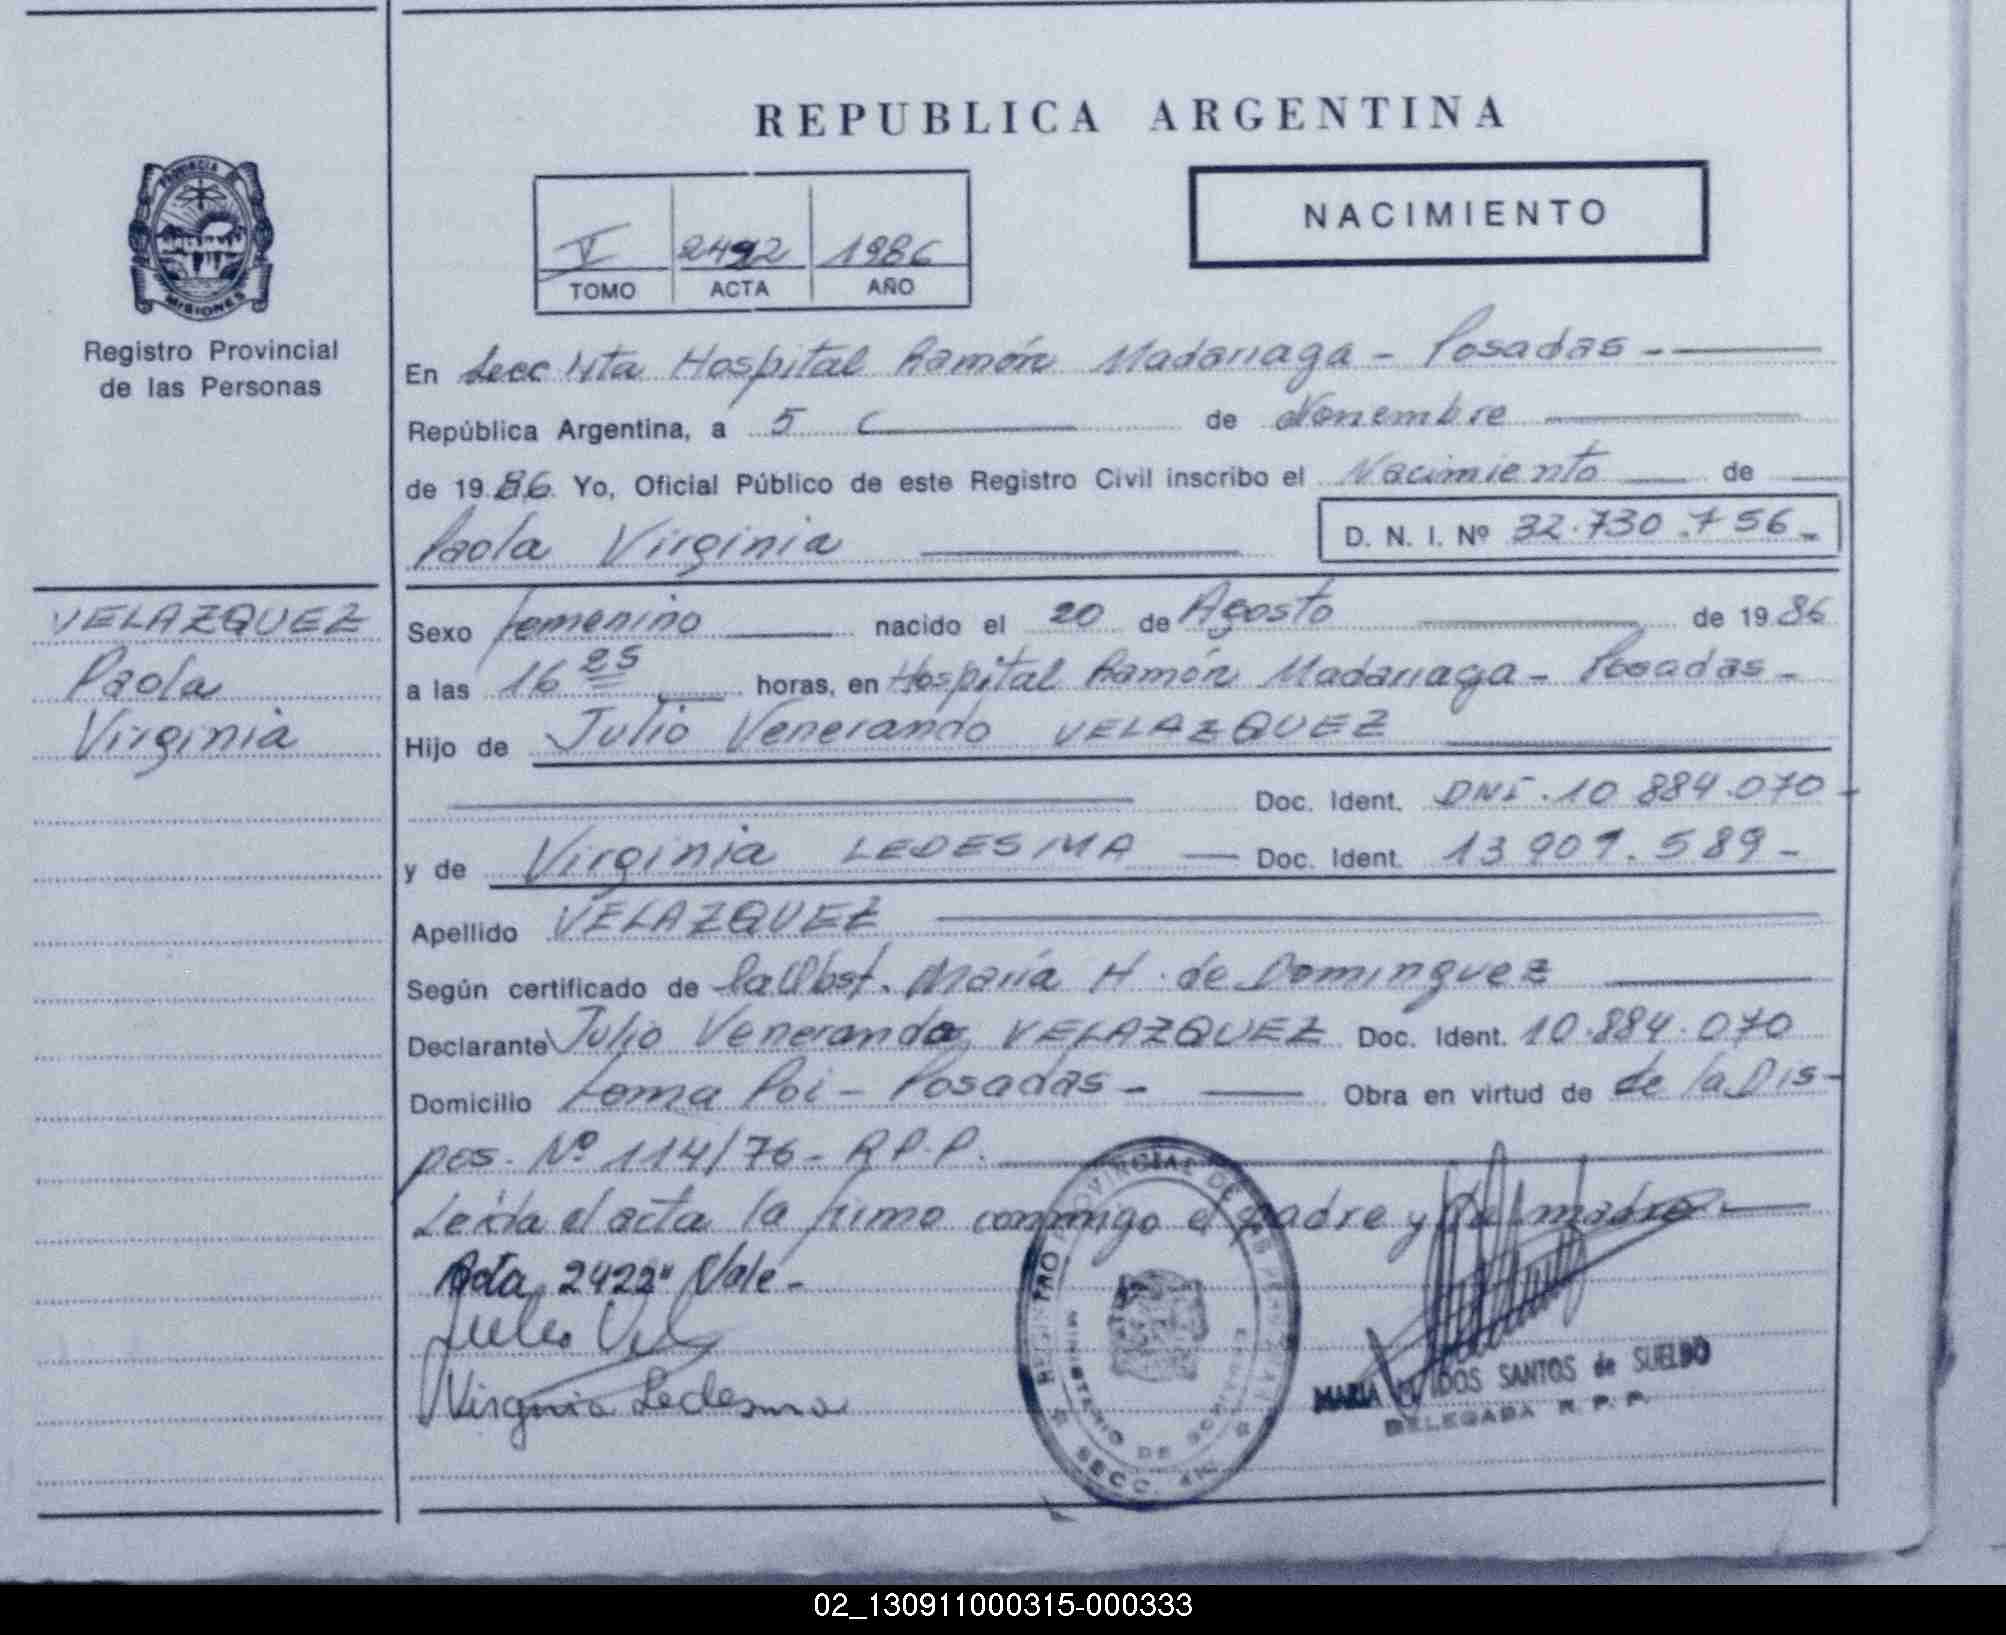 REPUBLICA ARGENTINA
PROVINCIA DE
MISIONES
Registro Provincial
de las Personas
V 2492 1986
TOMO ACTA AÑO
NACIMIENTO
En Secc 4ta Hospital Ramón Madariaga - Posadas -
República Argentina, a 5 de Noviembre
de 19 86. Yo, Oficial Público de este Registro Civil inscribo el Nacimiento de
Paola Virginia
D. N. I. Nº 32.730.756 -
VELAZQUEZ
Paola
Virginia
Sexo femenino nacido el 20 de Agosto de 19 86
a las 16 25 horas, en Hospital Ramón Madariaga - Posadas -
Hijo de Julio Venerando VELAZQUEZ
Doc. Ident. DNI. 10 884.070 -
y de Virginia LEDESMA Doc. Ident. 13 909.589 -
Apellido VELAZQUEZ
Según certificado de la Obst. María H. de Dominguez
Declarante Julio Venerando VELAZQUEZ Doc. Ident. 10.884.070
Domicilio Loma Poi - Posadas - Obra en virtud de de la Dis-
pos. Nº 114/76 - R.P.P.
Leida el acta la firmo conmigo el padre y la madre
Acta 2422" Vale -
Julio Vel
Virginia Ledesma
REGISTRO PROVINCIAL DE LAS PERSONAS
MINISTERIO DE GOBIERNO
SECC. 4ta
MARIA DOS SANTOS de SUELDO
DELEGADA R. P. P.
02_130911000315-000333